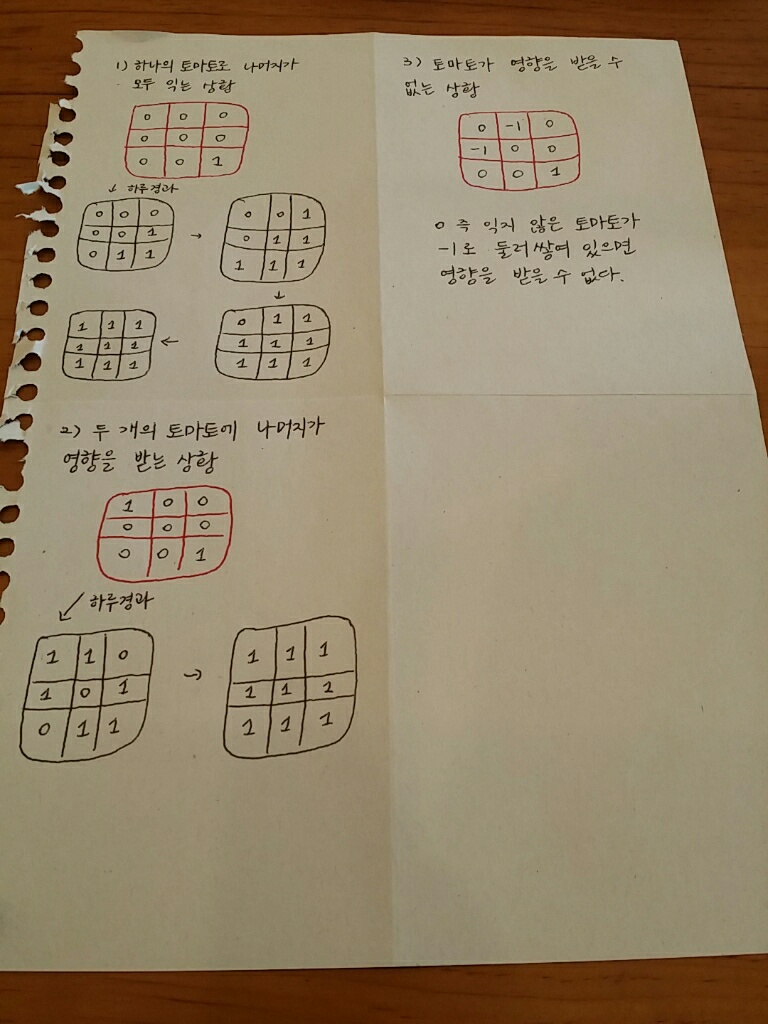 1) 하나의 토마토로 나머지가
모두 익는 상황
0 0 0
0 0 0
0 0 1
↓ 하루경과
0 0 0
0 0 1
0 1 1
→
0 0 1
0 1 1
1 1 1
↓
0 1 1
1 1 1
1 1 1
←
1 1 1
1 1 1
1 1 1
2) 두 개의 토마토에 나머지가
영향을 받는 상황
1 0 0
0 0 0
0 0 1
↙ 하루경과
1 1 0
1 0 1
0 1 1
→
1 1 1
1 1 1
1 1 1
3) 토마토가 영향을 받을 수
없는 상황
0 -1 0
-1 0 0
0 0 1
0 즉 익지 않은 토마토가
-1로 둘러쌓여 있으면
영향을 받을 수 없다.